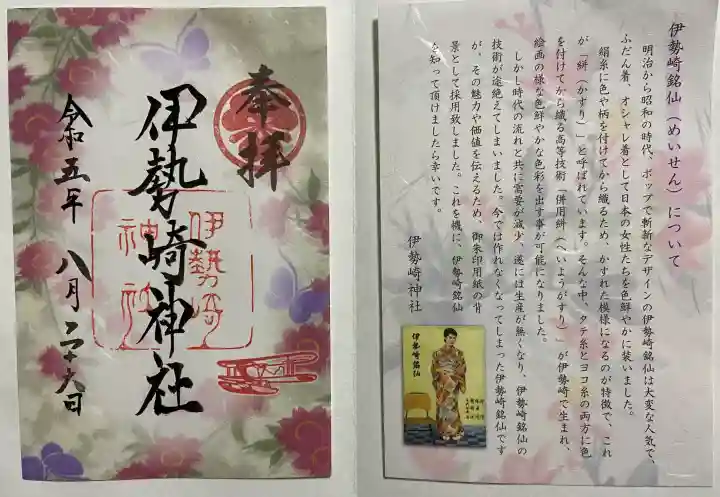 奉拝
伊勢崎神社
伊勢崎
神社
令和五年 八月二十六日
伊勢崎銘仙（めいせん）について
明治から昭和の時代、ポップで斬新なデザインの伊勢崎銘仙は大変な人気で、
ふだん着、オシャレ着として日本の女性たちを色鮮やかに装いました。
絹糸に色や柄を付けてから織るため、かすれた模様になるのが特徴で、これ
が「絣（かすり）」と呼ばれています。そんな中、タテ糸とヨコ糸の両方に色
を付けてから織る高等技術「併用絣（へいようがすり）」が伊勢崎で生まれ、
絵画の様な色鮮やかな色彩を出す事が可能になりました。
しかし時代の流れと共に需要が減少、遂には生産が無くなり、伊勢崎銘仙の
技術が途絶えてしまいました。今では作れなくなってしまった伊勢崎銘仙です
が、その魅力や価値を伝えるため、御朱印用紙の背
景として採用致しました。これを機に、伊勢崎銘仙
を知って頂けましたら幸いです。
伊勢崎神社
伊勢崎銘仙